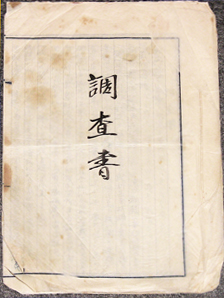 調査書